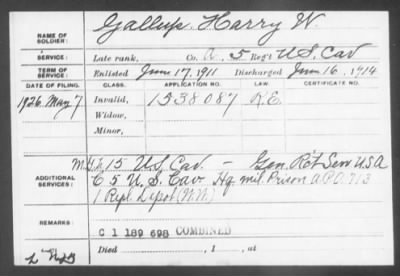 NAME OF SOLDIER: Gallup, Harry W.
SERVICE: Late rank, Co. A, 5 Reg't U.S. Cav
TERM OF SERVICE: Enlisted June 17, 1911 Discharged June 16, 1914
DATE OF FILING. CLASS. APPLICATION NO. LAW. CERTIFICATE NO.
1926 May 7 Invalid, 1538087 R.E.
Widow,
Minor,
15 U.S. Cav — Gen. Ret Serv USA
ADDITIONAL SERVICES: C 5 U.S. Cav. Hq mil. Prison A.P.O. 713
1 Repl. Depot
REMARKS:
C 1 189 698 COMBINED
Died , 1 , at